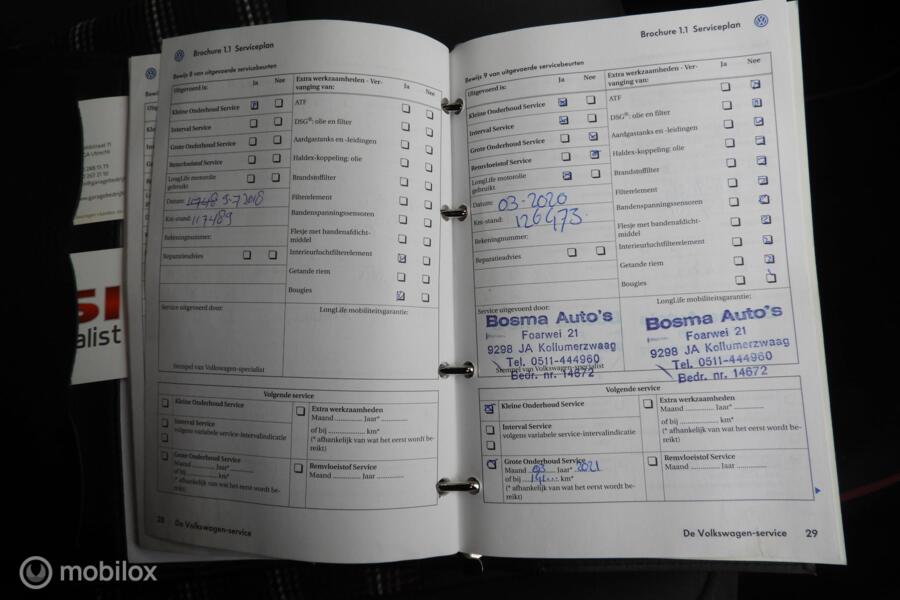 Brochure 1.1 Serviceplan
Bewijs 8 van uitgevoerde servicebeurten
Uitgevoerd is:
Ja
Nee
Extra werkzaamheden - Ver-
vanging van:
Ja
Nee
Kleine Onderhoud Service
Interval Service
Grote Onderhoud Service
Remvloeistof Service
LongLife motorolie
gebruikt
Datum: 5-7 2018
Km-stand: 117489
Rekeningnummer:
Reparatieadvies
ATF
DSG®: olie en filter
Aardgastanks en -leidingen
Haldex-koppeling: olie
Brandstoffilter
Filterelement
Bandenspanningssensoren
Flesje met bandenafdicht-
middel
Interieurluchtfilterelement
Getande riem
Bougies
Service uitgevoerd door:
LongLife mobiliteitsgarantie:
Stempel van Volkswagen-specialist
Volgende service
Kleine Onderhoud Service
Interval Service
volgens variabele service-intervalindicatie
Grote Onderhoud Service
Maand ........... Jaar* ...........
of bij ........... km*
(* afhankelijk van wat het eerst wordt be-
reikt)
Extra werkzaamheden
Maand ........... Jaar* ...........
of bij ........... km*
(* afhankelijk van wat het eerst wordt be-
reikt)
Remvloeistof Service
Maand ........... Jaar ...........
28 De Volkswagen-service
Brochure 1.1 Serviceplan
Bewijs 9 van uitgevoerde servicebeurten
Uitgevoerd is:
Ja
Nee
Extra werkzaamheden - Ver-
vanging van:
Ja
Nee
Kleine Onderhoud Service
Interval Service
Grote Onderhoud Service
Remvloeistof Service
LongLife motorolie
gebruikt
Datum: 03-2020
Km-stand: 126473
Rekeningnummer:
Reparatieadvies
ATF
DSG®: olie en filter
Aardgastanks en -leidingen
Haldex-koppeling: olie
Brandstoffilter
Filterelement
Bandenspanningssensoren
Flesje met bandenafdicht-
middel
Interieurluchtfilterelement
Getande riem
Bougies
Service uitgevoerd door:
Bosma Auto's
Foarwei 21
9298 JA Kollumerzwaag
Tel. 0511-444960
Bedr. nr. 14672
Stempel van Volkswagen-specialist
LongLife mobiliteitsgarantie:
Bosma Auto's
Foarwei 21
9298 JA Kollumerzwaag
Tel. 0511-444960
Bedr. nr. 14672
Volgende service
Kleine Onderhoud Service
Interval Service
volgens variabele service-intervalindicatie
Grote Onderhoud Service
Maand 03 Jaar* 2021
of bij ........... km*
(* afhankelijk van wat het eerst wordt be-
reikt)
Extra werkzaamheden
Maand ........... Jaar* ...........
of bij ........... km*
(* afhankelijk van wat het eerst wordt be-
reikt)
Remvloeistof Service
Maand ........... Jaar ...........
De Volkswagen-service 29
mobilox